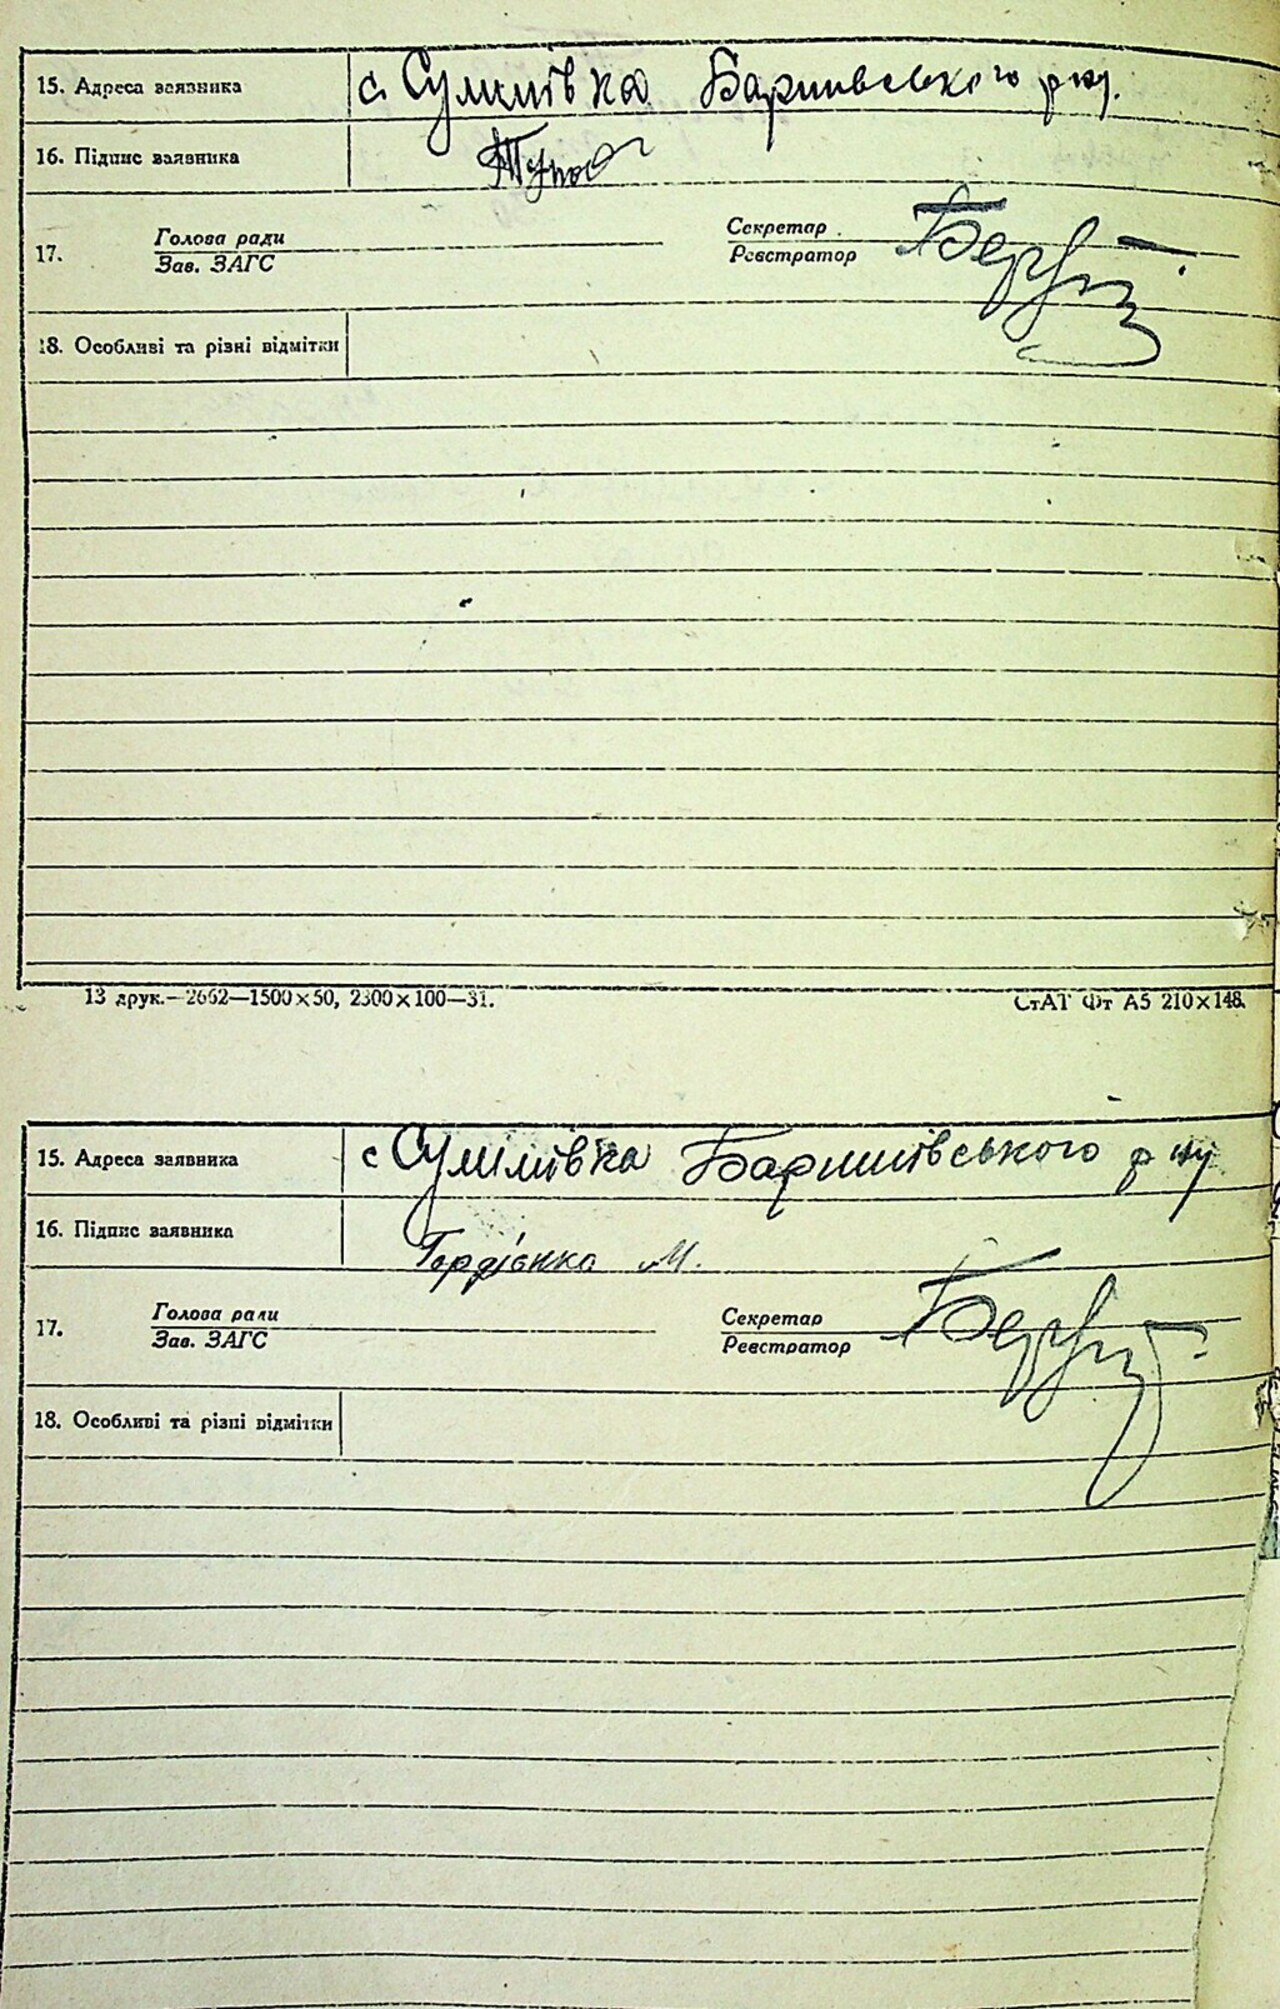 15. Адреса заявника с Сулимівка Баришівського р ну.
16. Підпис заявника
Голова ради Секретар
17.
Зав. ЗАГС Реєстратор
18. Особливі та різні відмітки
13 друк.—2662—1500×50, 2300×100—31. СтАТ Фт А5 210×148.
15. Адреса заявника с Сулимівка Баришівського р ну
16. Підпис заявника Гордієнко М.
Голова ради Секретар
17.
Зав. ЗАГС Реєстратор
18. Особливі та різні відмітки